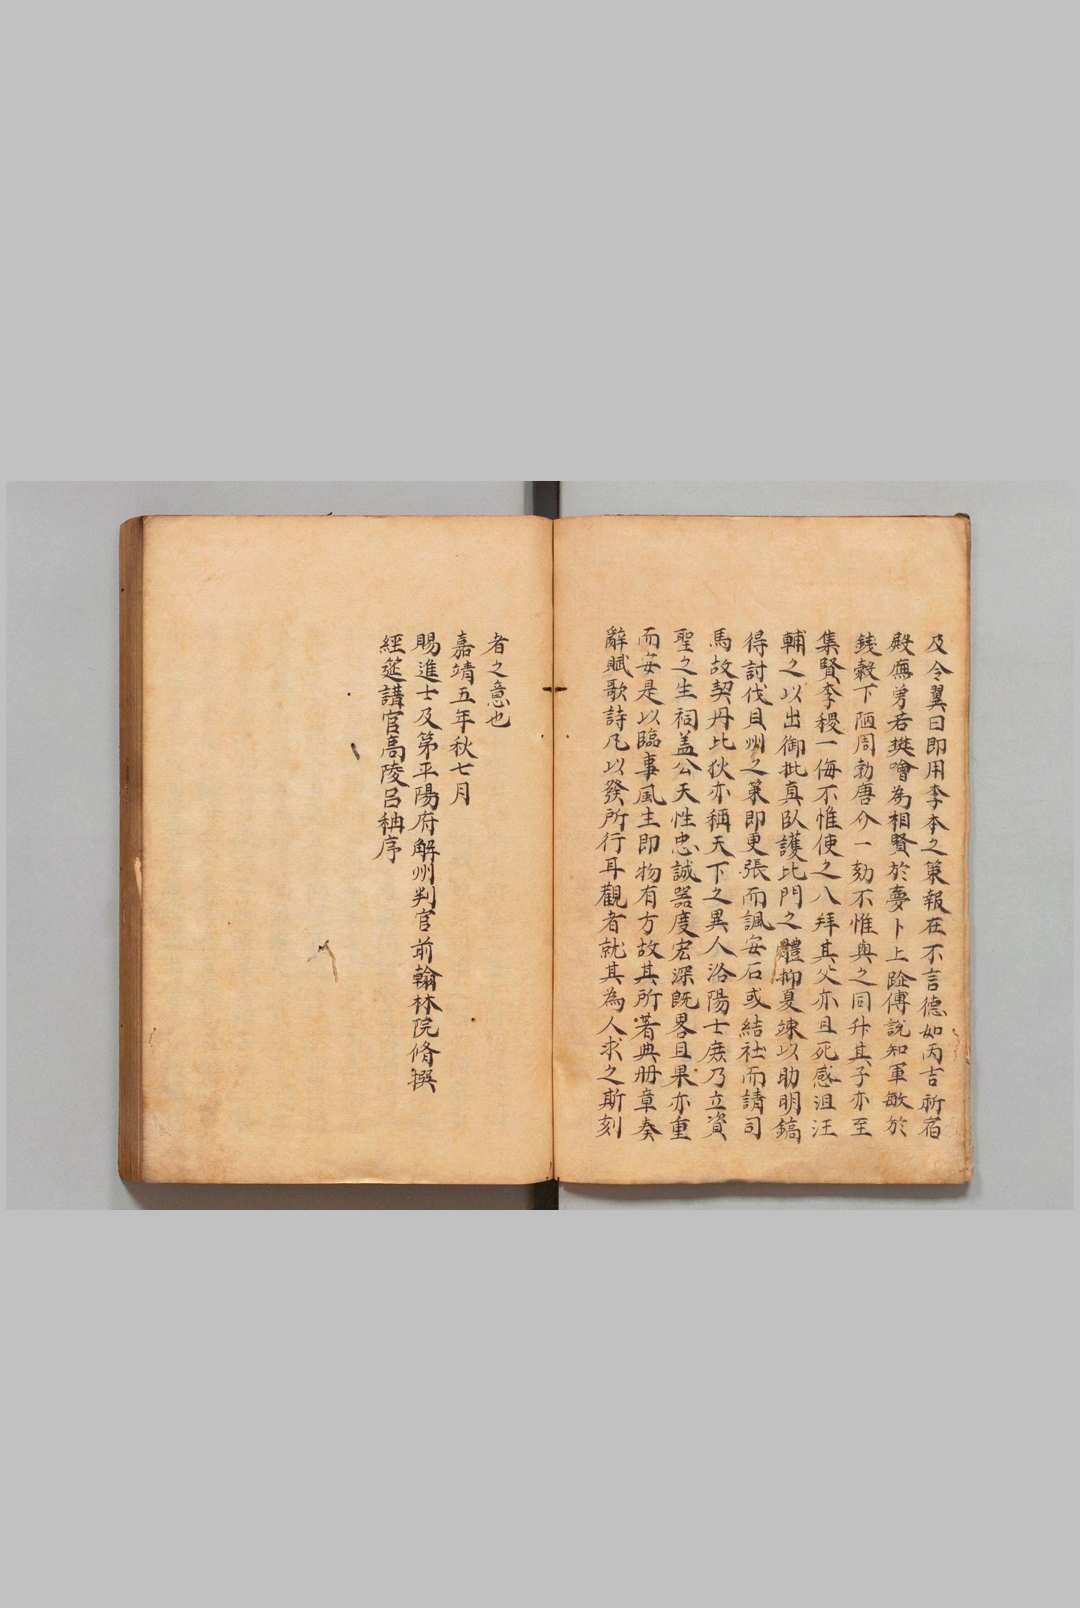 及令翼日即用李本之策報在不言德如丙吉祈宿
殿廡勇若樊噲為相賢於夢卜上陞傅說知軍敏於
錢穀下陋周勃唐介一劾不惟與之同升其子亦至
集賢李稷一侮不惟使之八拜其父亦且死感沮汪
輔之以出御批真臥護北門之體抑夏竦以助明鎬
得討伐貝州之策即更張而諷安石或結社而請司
馬故契丹比狄亦稱天下之異人洛陽士庶乃立資
聖之生祠盖公天性忠誠器度宏深既畧且果亦重
而安是以臨事風主即物有方故其所著典册章奏
辭賦歌詩凡以發所行耳觀者就其為人求之斯刻
者之意也
嘉靖五年秋七月
賜進士及第平陽府解州判官前翰林院脩撰
經筵講官高陵吕柟序